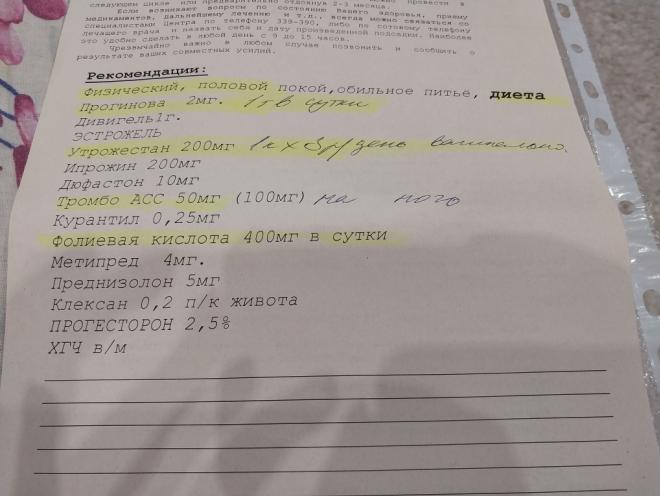 следующем цикле или предварительно отдохнув 2-3 месяца.
Если возникают вопросы по состоянию Вашего здоровья, приему
медикаментов, дальнейшему лечению и т.д., всегда можно связаться со
специалистами Центра по телефону 339-390, либо по сотовому телефону
лечащего врача и назвать себя и дату произведенной подсадки. Наиболее
это удобно сделать в любой день с 9 до 15 часов.
Чрезвычайно важно в любом случае позвонить и сообщить о
результате ваших совместных усилий.
Рекомендации:
Физический, половой покой,обильное питье, диета
Прогинова 2мг. 1т в сутки
Дивигель1г.
ЭСТРОЖЕЛЬ
Утрожестан 200мг 1к х 3р/день вагинально.
Ипрожин 200мг
Дюфастон 10мг
Тромбо АСС 50мг (100мг) на ночь
Курантил 0,25мг
Фолиевая кислота 400мг в сутки
Метипред 4мг.
Преднизолон 5мг
Клексан 0,2 п/к живота
ПРОГЕСТОРОН 2,5%
ХГЧ в/м